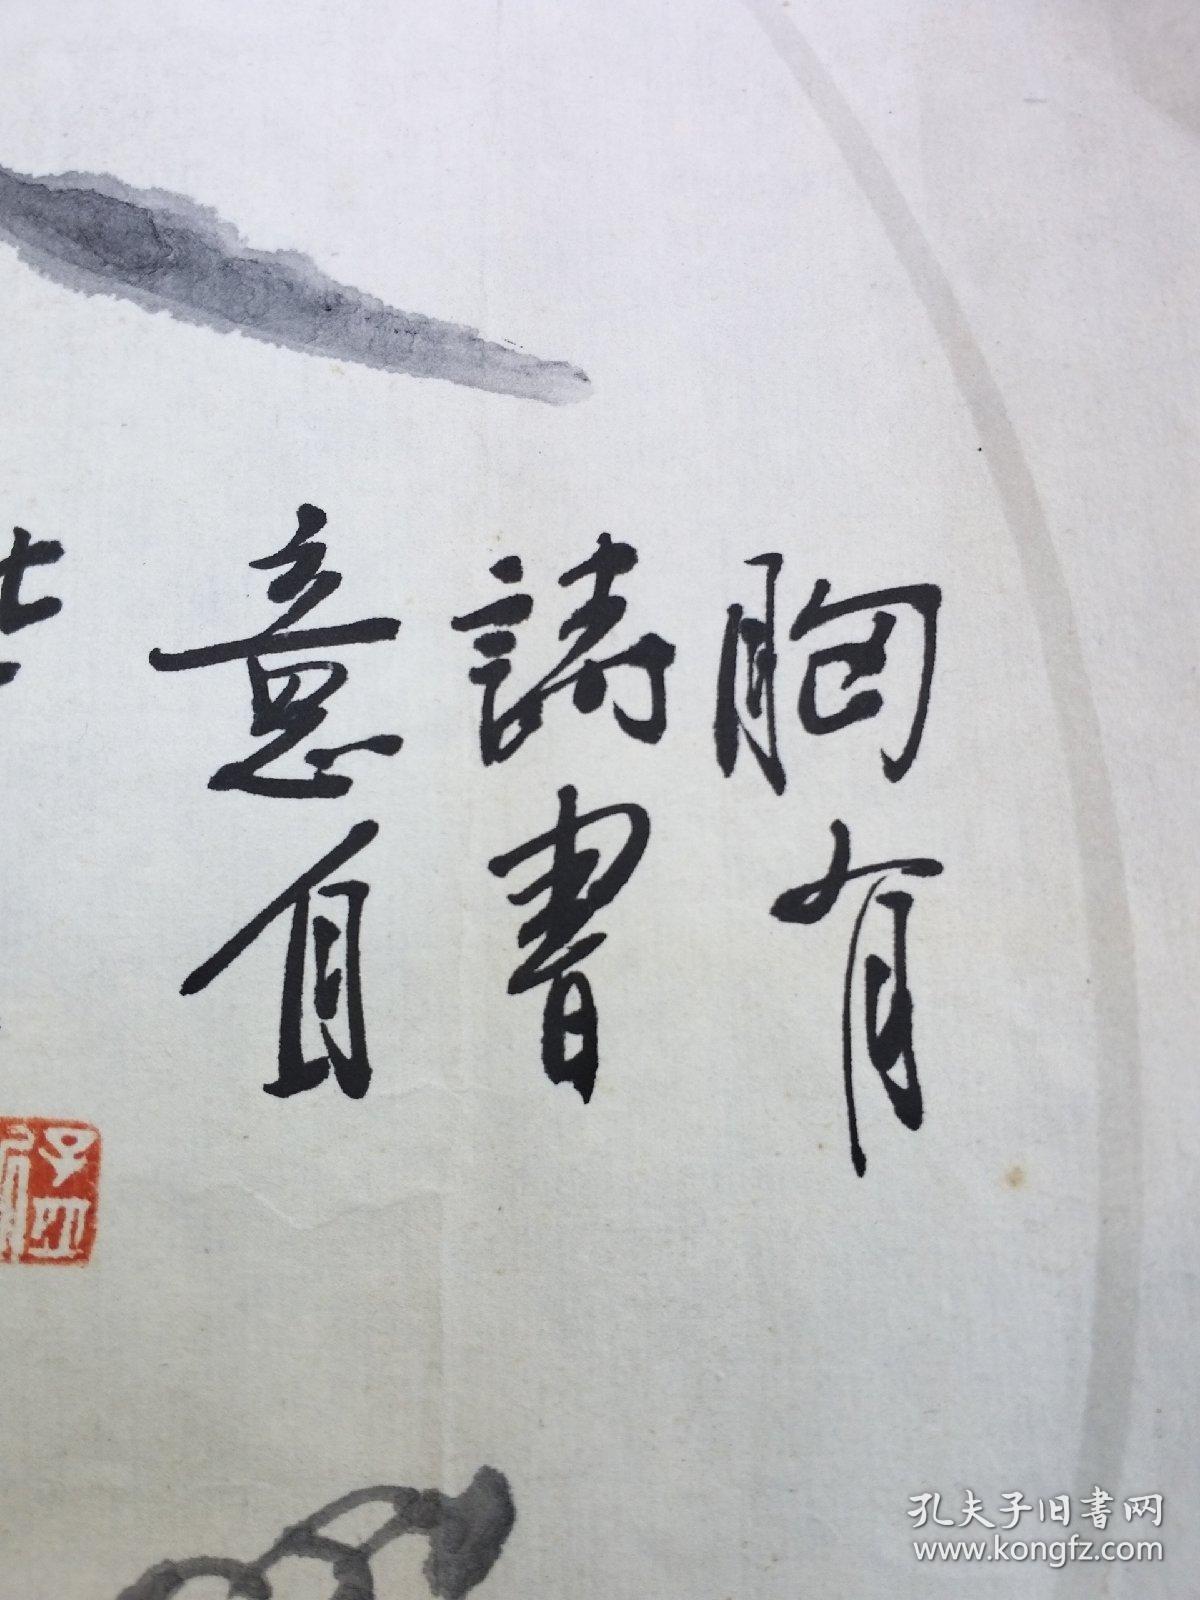 胸有
詩書
意自
孔夫子旧书网
www.kongfz.com